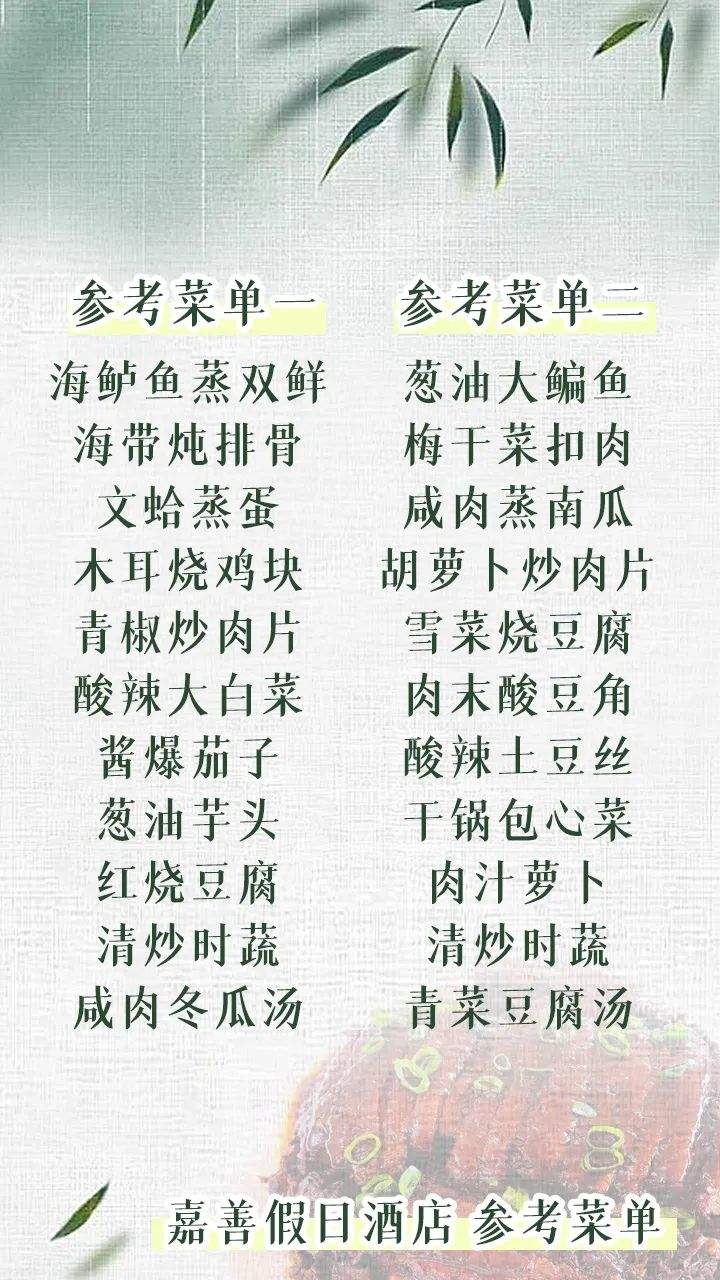 参考菜单一
海鲈鱼蒸双鲜
海带炖排骨
文蛤蒸蛋
木耳烧鸡块
青椒炒肉片
酸辣大白菜
酱爆茄子
葱油芋头
红烧豆腐
清炒时蔬
咸肉冬瓜汤
参考菜单二
葱油大鳊鱼
梅干菜扣肉
咸肉蒸南瓜
胡萝卜炒肉片
雪菜烧豆腐
肉末酸豆角
酸辣土豆丝
干锅包心菜
肉汁萝卜
清炒时蔬
青菜豆腐汤
嘉善假日酒店 参考菜单